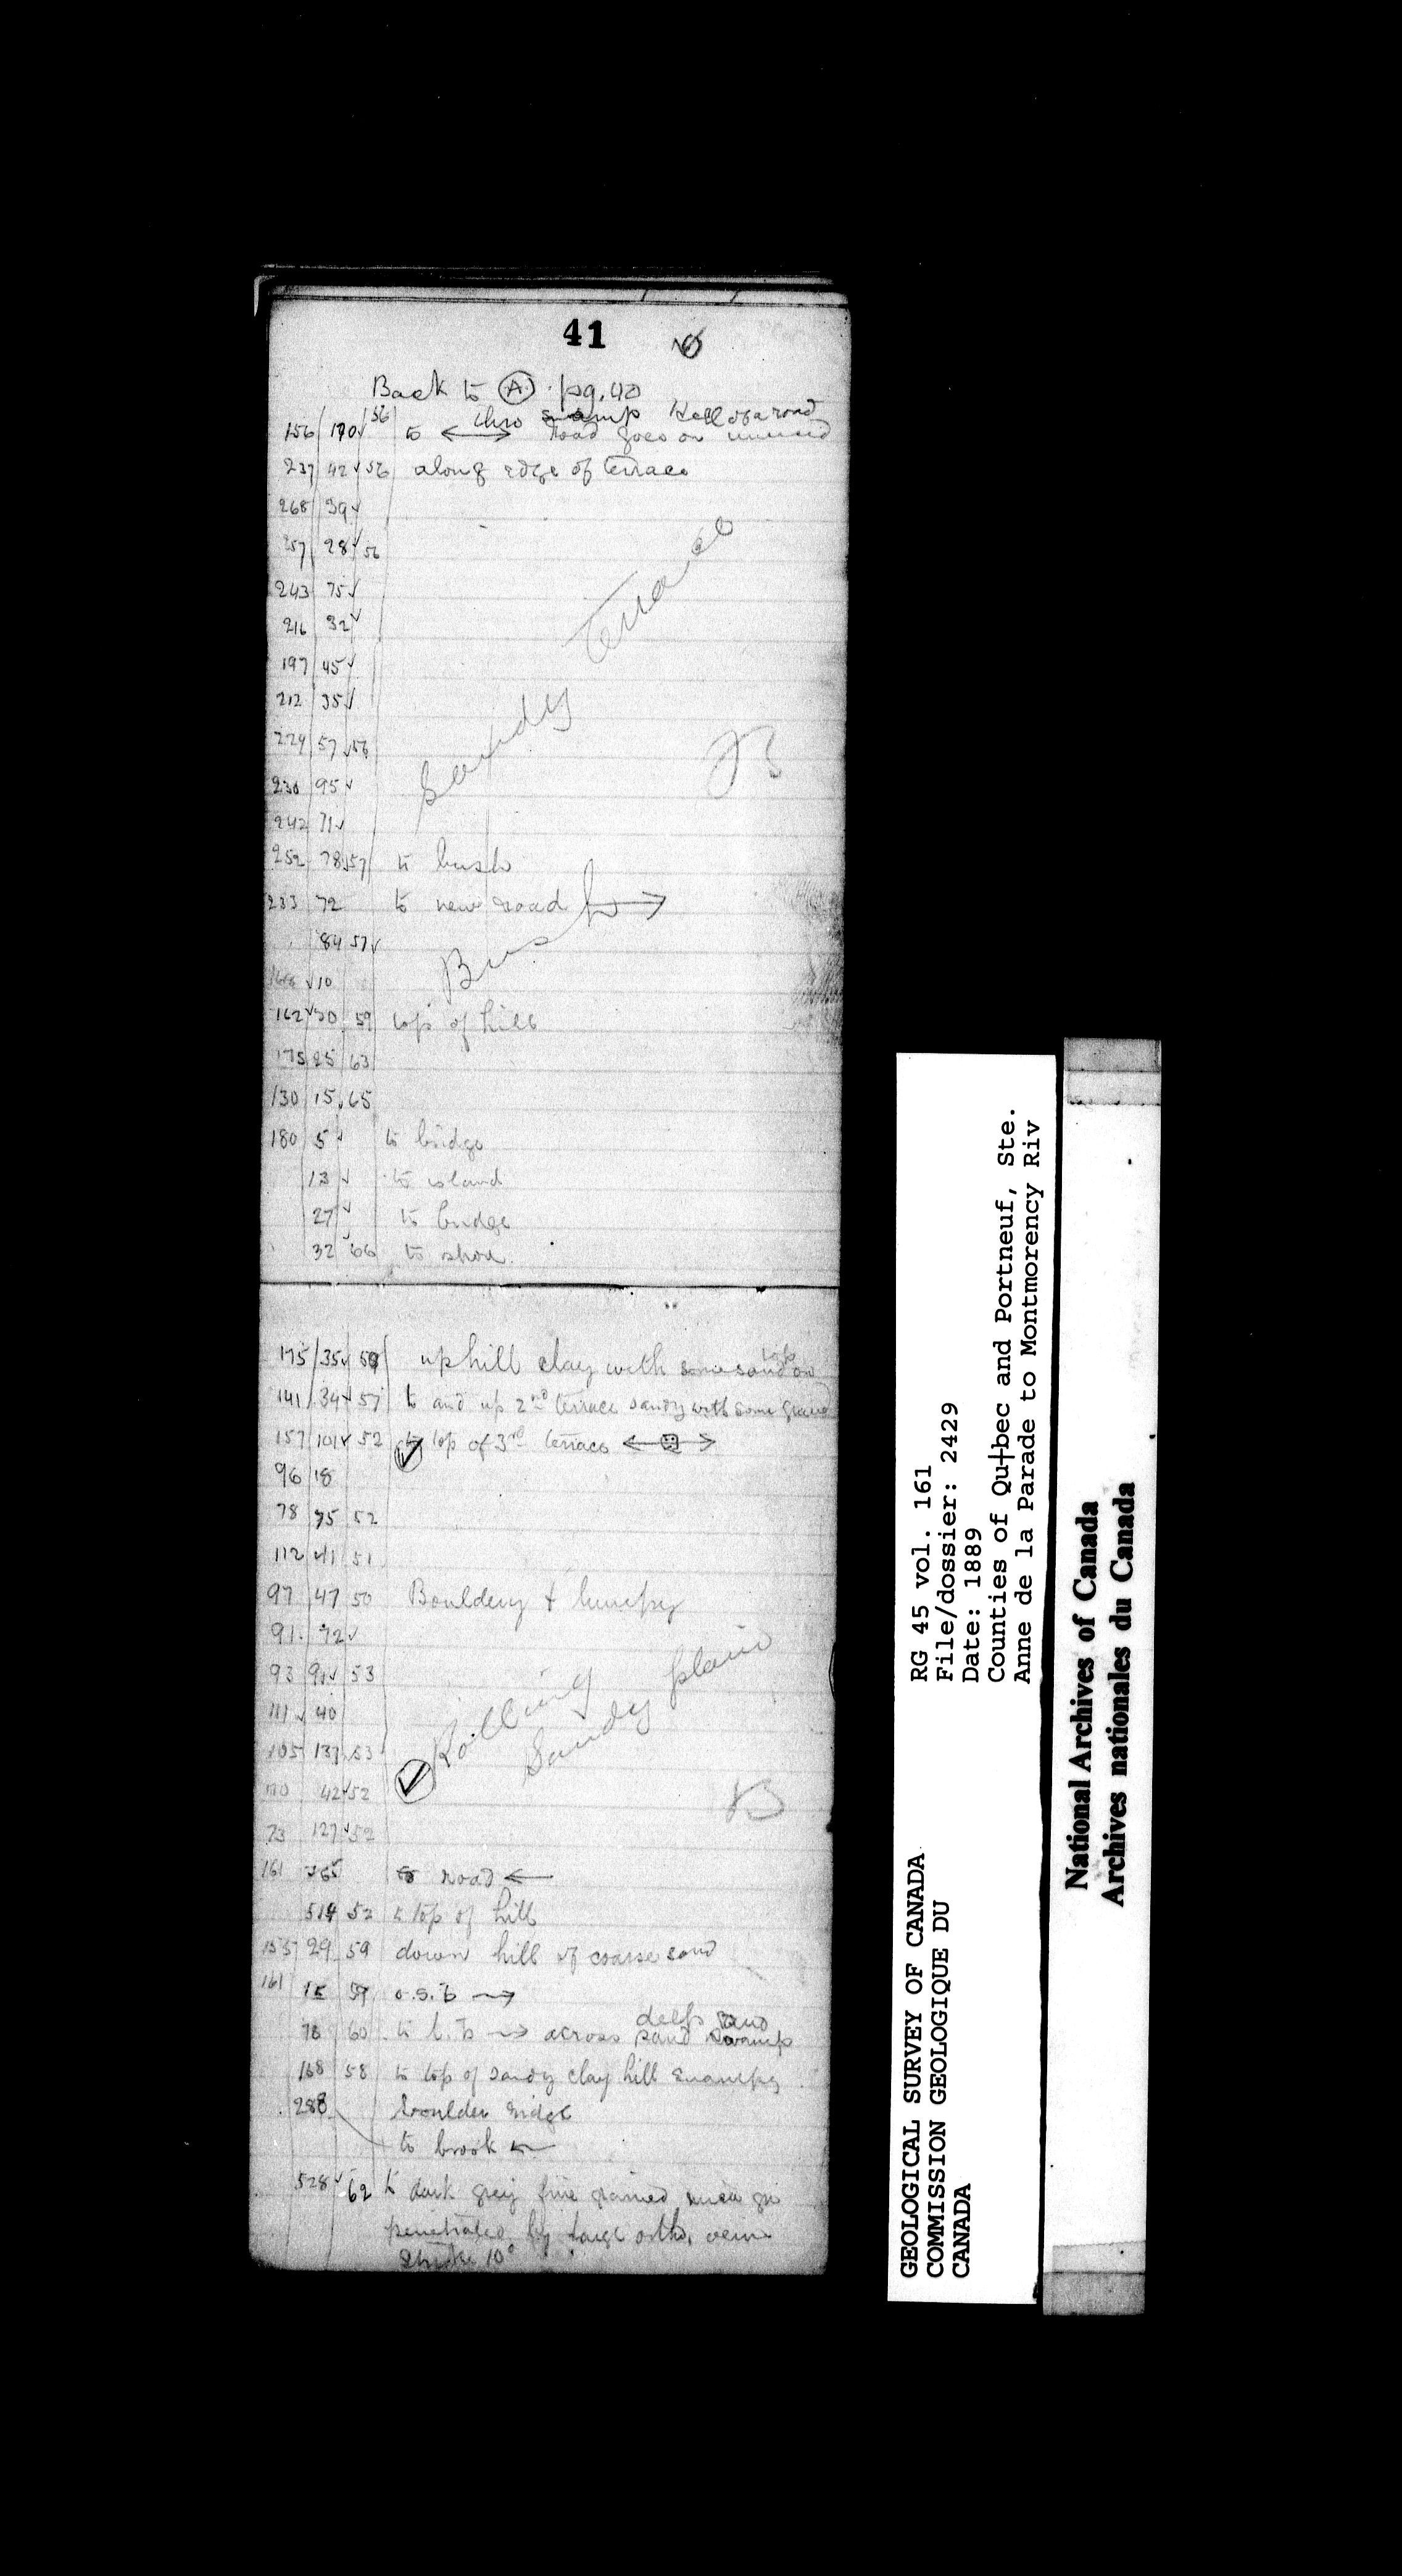 41
Back to (A) pg. 40
thro swamp
156 170 56 to ⟷ road goes on unused
237 42 ✓ 56 along edge of terrace
268 39 ✓
257 28 ✓ 56
243 75 ✓
216 32 ✓
197 45 ✓
212 35 ✓
229 57 ✓ 56
230 95 ✓
242 71 ✓
Sandy terrace
B
252 78 ✓ 57 to bush
233 72 to new road →
84 57 ✓
Bush
168 ✓ 10
162 ✓ 20 59 top of hill
175 25 63
130 15 65
180 5 ✓ to bridge
13 ✓ to island
27 ✓ to bridge
32 ✓ 66 to shore.
175 35 ✓ 58 up hill clay with some sand on top
141 34 ✓ 57 to and up 2nd terrace sandy with some gravel
157 101 ✓ 52 to top of 3rd terrace ⟷
96 18
78 75 52
112 41 51
97 47 50 Bouldery + lumpy
91 72 ✓
93 91 ✓ 53
111 ✓ 40
105 137 53
110 42 ✓ 52
73 127 ✓ 52
Rolling Sandy plain
B
161 765 to road ←
514 52 to top of hill
155 29 59 down hill of coarse sand
161 15 59 o.s.b →
deep
78 60 to l.b → across sand swamp
168 58 to top of sandy clay hill swampy
288 boulder ridge
to brook ←
528 ✓ 62 to dark grey fine grained mica gn
penetrated by large ortho. veins
Strike 10°
RG 45 vol. 161
File/dossier: 2429
Date: 1889
Counties of Qu†bec and Portneuf, Ste.
Anne de la Parade to Montmorency Riv
GEOLOGICAL SURVEY OF CANADA
COMMISSION GEOLOGIQUE DU
CANADA
National Archives of Canada
Archives nationales du Canada